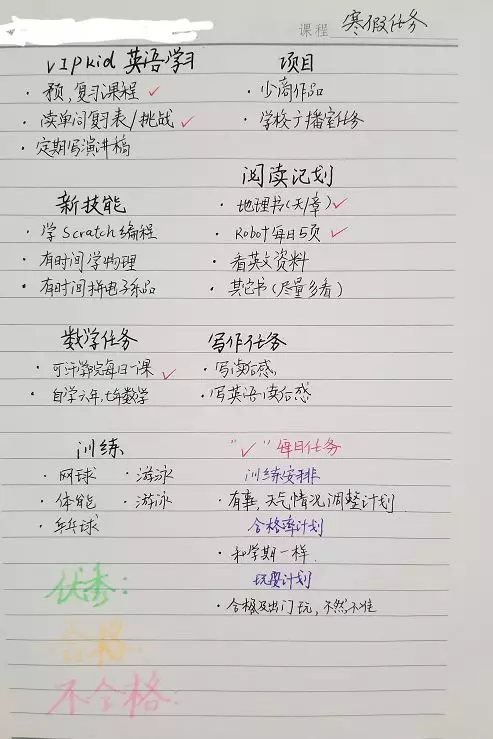 课程 寒假任务
vipkid 英语学习
· 预,复习课程 ✓
· 读单词复习表/挑战 ✓
· 定期写演讲稿
项目
· 少商作品
· 学校广播室任务
新技能
· 学Scratch编程
· 有时间学物理
· 有时间拼电子乐品
阅读计划
· 地理书(天/章) ✓
· Robot每日5页 ✓
· 看英文资料
· 其它书(尽量多看)
数学任务
· 可汗学院每日一课 ✓
· 自学六年,七年数学
写作任务
· 写读后感,
· 写英语读后感
训练
· 网球 · 游泳
· 体能 · 游泳
· 乒乓球
"✓"每日任务
训练安排
· 有事,天气情况调整计划
合格率计划
· 和学期一样
玩耍计划
· 合格及出门玩,不然不准
优秀:
合格:
不合格: